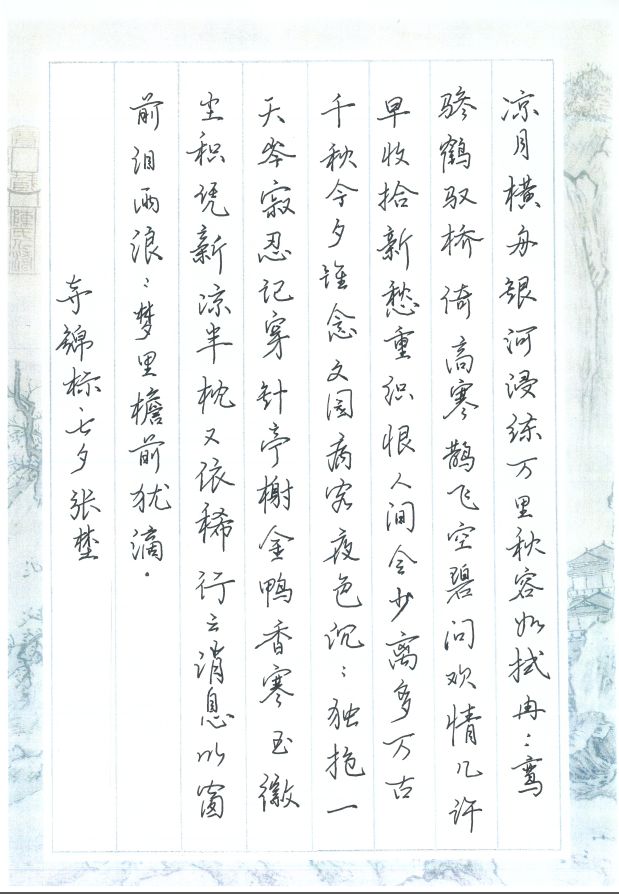 凉月横舟银河浸练万里秋容如拭冉々鸾
骖鹤驭桥倚高寒鹊飞空碧问欢情几许
早收拾新愁重织恨人间会少离多万古
千秋今夕谁念文园病客夜色沉々独抱一
天岑寂忍记穿针亭榭金鸭香寒玉徽
尘积凭新凉半枕又依稀行云消息听窗
前泪雨浪々梦里檐前犹滴.
夺锦标七夕 张埜